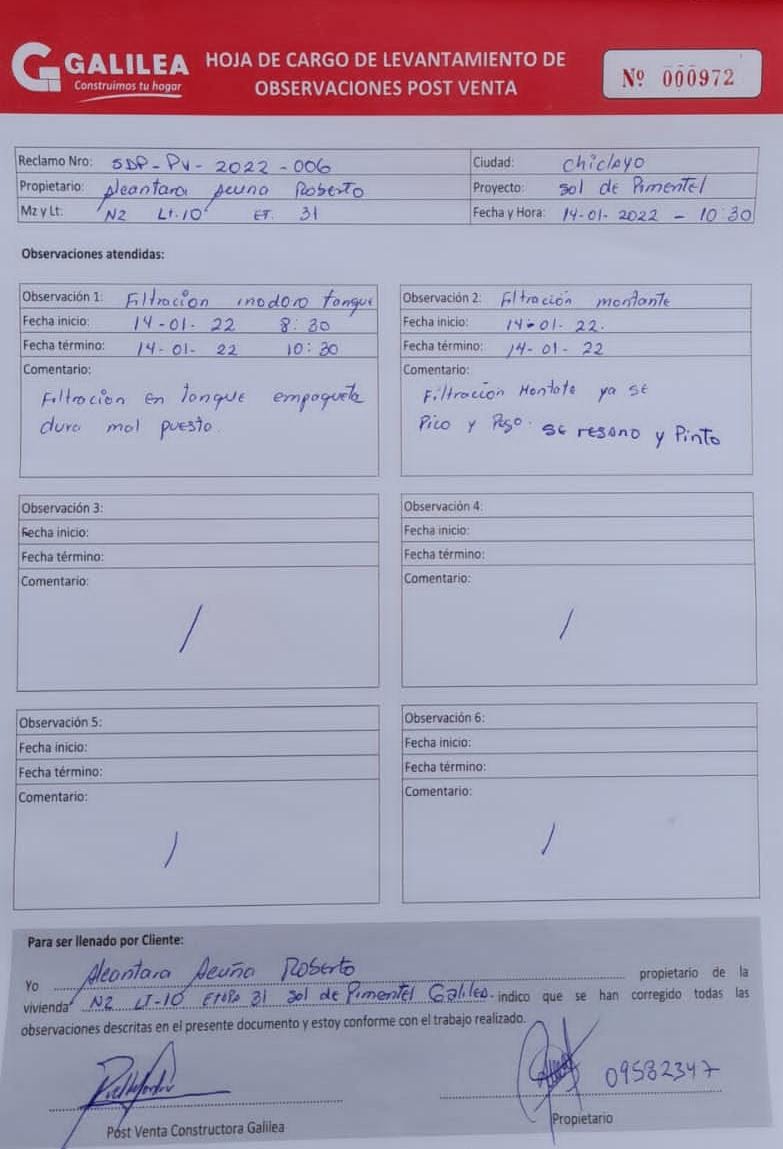 GALILEA
Construimos tu hogar
HOJA DE CARGO DE LEVANTAMIENTO DE
OBSERVACIONES POST VENTA
Nº 000972
Reclamo Nro: SDP-PV-2022-006
Ciudad: Chiclayo
Propietario: Alcantara Acuna Roberto
Proyecto: Sol de Pimentel
Mz y Lt: N2 Lt.10 ET. 31
Fecha y Hora: 14-01-2022 - 10:30
Observaciones atendidas:
Observación 1: Filtracion inodoro tanque
Fecha inicio: 14-01-22 8:30
Fecha término: 14-01-22 10:30
Comentario:
Filtracion en tanque empaqueta
dura mal puesto.
Observación 2: Filtración montante
Fecha inicio: 14-01-22.
Fecha término: 14-01-22
Comentario:
Filtración Montate ya se
Pico y Pego. se resano y Pinto
Observación 3:
Fecha inicio:
Fecha término:
Comentario:
/
Observación 4:
Fecha inicio:
Fecha término:
Comentario:
/
Observación 5:
Fecha inicio:
Fecha término:
Comentario:
/
Observación 6:
Fecha inicio:
Fecha término:
Comentario:
/
Para ser llenado por Cliente:
Yo Alcantara Acuña Roberto propietario de la
vivienda N2 LT-10 Etapa 31 Sol de Pimentel Galilea. indico que se han corregido todas las
observaciones descritas en el presente documento y estoy conforme con el trabajo realizado.
09582347
Post Venta Constructora Galilea
Propietario